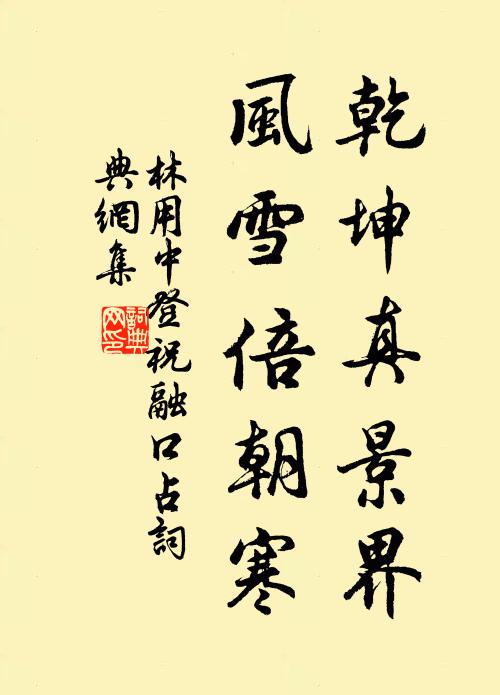 乾坤真景界
風雪倍朝寒
林用中登祝融口占詞
典網集
詞典网印